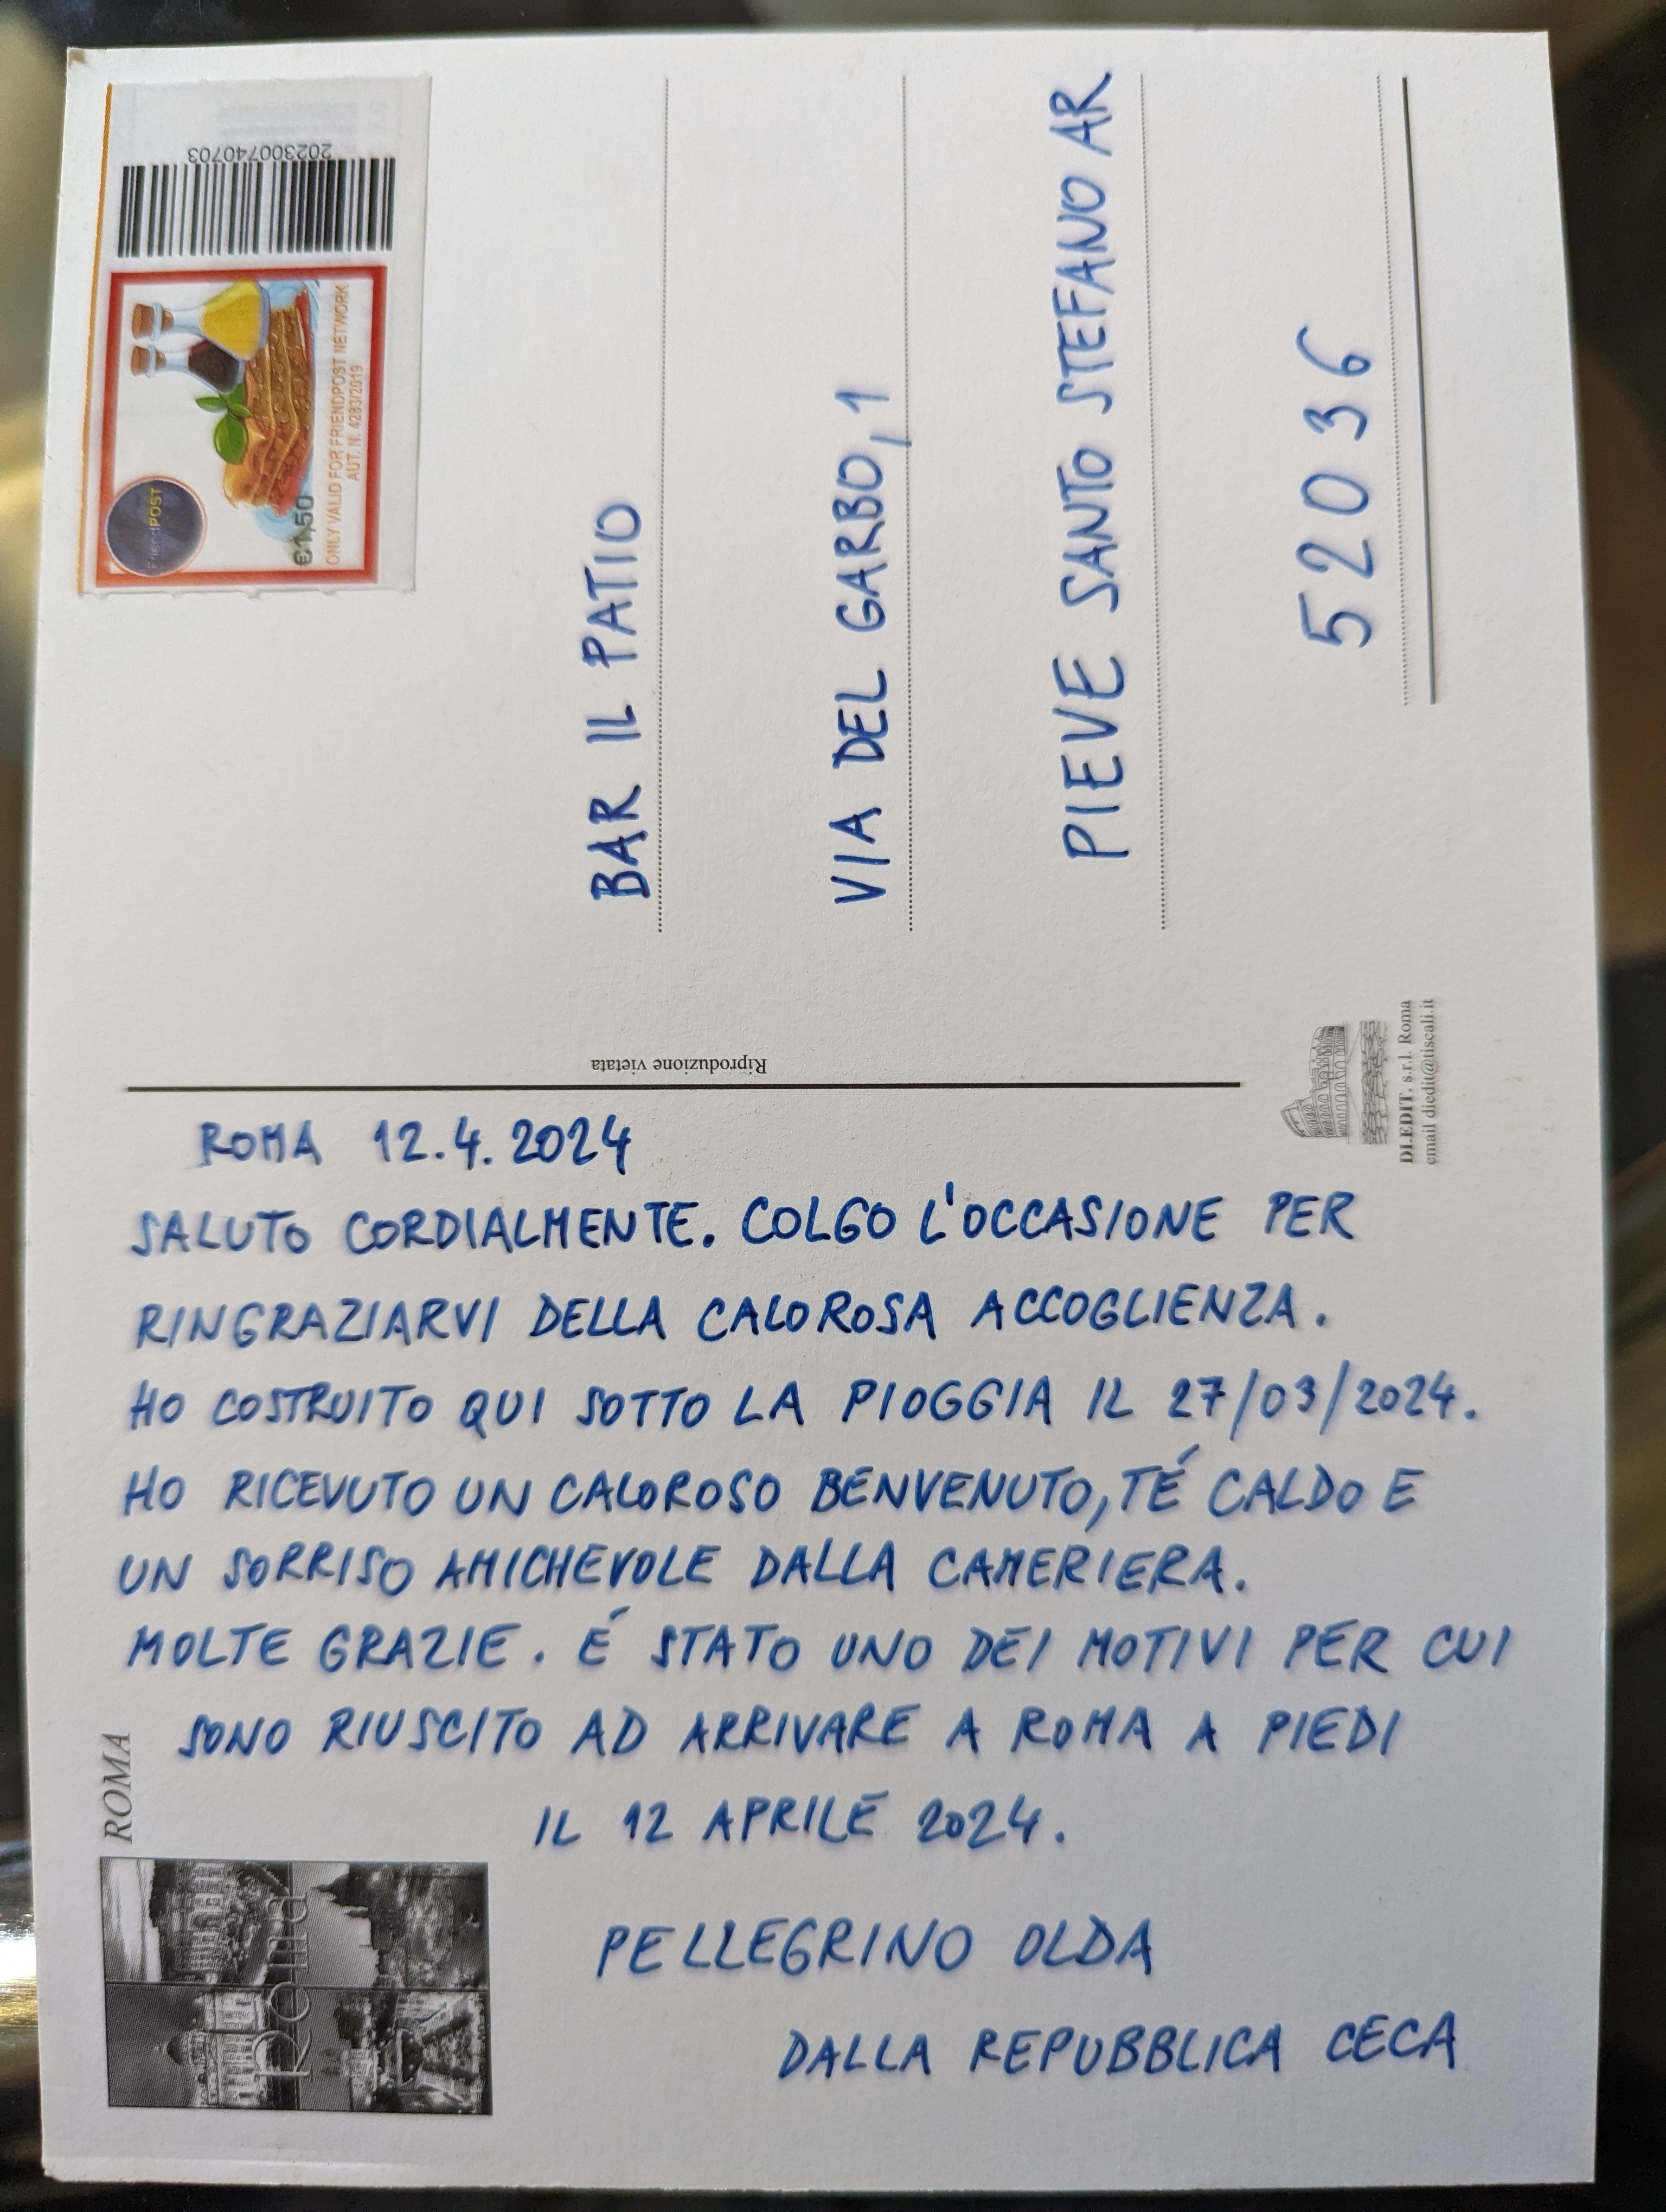 ROMA 12.4.2024
SALUTO CORDIALMENTE. COLGO L'OCCASIONE PER
RINGRAZIARVI DELLA CALOROSA ACCOGLIENZA.
HO COSTRUITO QUI SOTTO LA PIOGGIA IL 27/03/2024.
HO RICEVUTO UN CALOROSO BENVENUTO, TÉ CALDO E
UN SORRISO AMICHEVOLE DALLA CAMERIERA.
MOLTE GRAZIE. É STATO UNO DEI MOTIVI PER CUI
SONO RIUSCITO AD ARRIVARE A ROMA A PIEDI
IL 12 APRILE 2024.
PELLEGRINO OLDA
DALLA REPUBBLICA CECA
ROMA
Roma
Riproduzione vietata
202300740703
FriendPOST
€1,50
ONLY VALID FOR FRIENDPOST NETWORK
AUT. N. 4283/2019
BAR IL PATIO
VIA DEL GARBO, 1
PIEVE SANTO STEFANO AR
52036
DI.EDIT. s.r.l. Roma
email diedit@tiscali.it